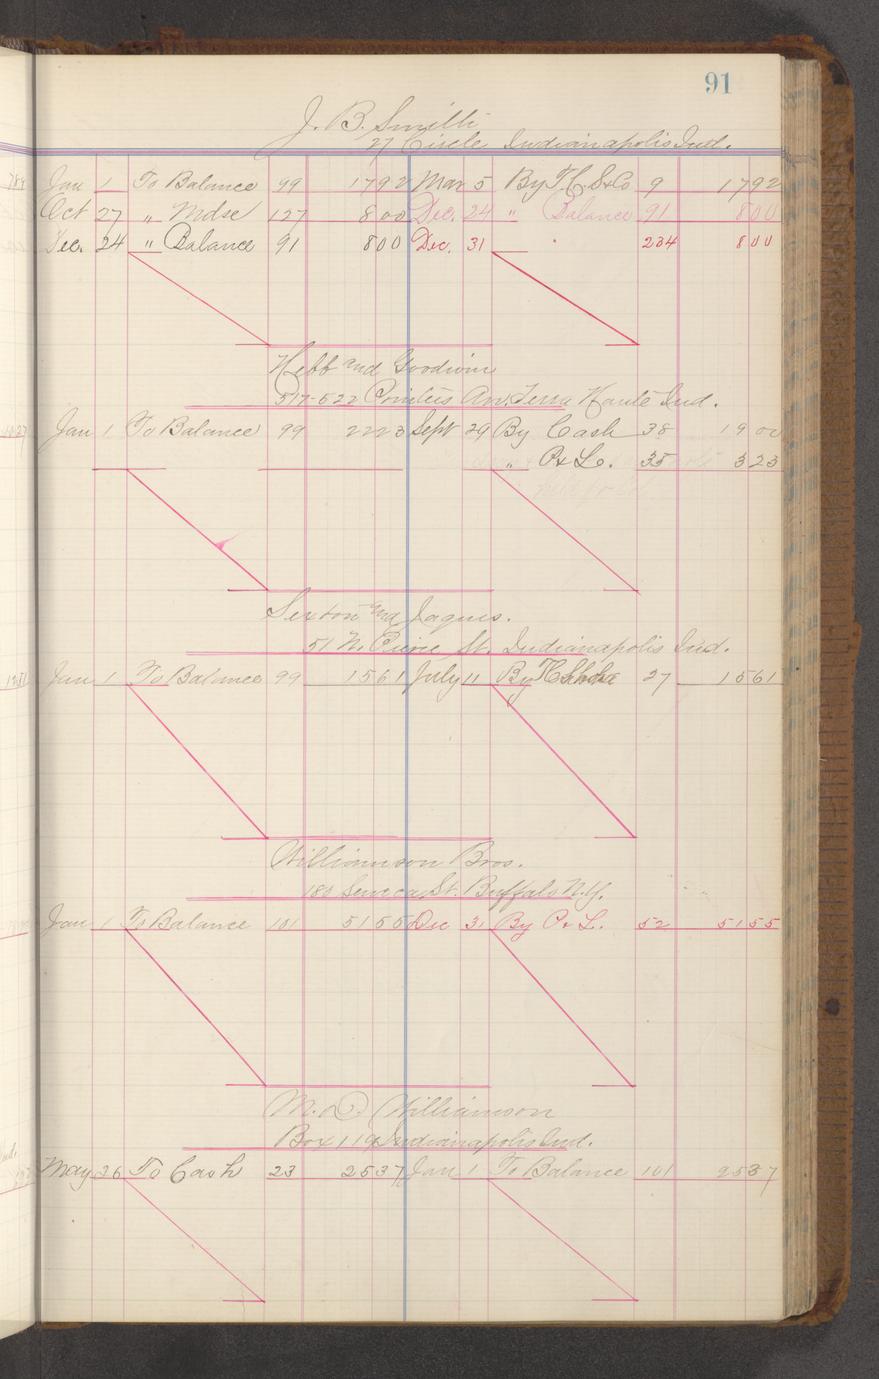 91
J. B. Smith
27 Circle Indianapolis Ind.
Jan 1 To Balance 99 1792 Mar 5 By H.C.S&Co 9 1792
Oct 27 " Mdse 127 800 Dec. 24 " Balance 91 800
Dec. 24 " Balance 91 800 Dec. 31 234 800
and Goodwin
517-522 Av. Terra Haute Ind.
Jan 1 To Balance 99 2223 Sept 29 By Cash 38 1900
" P & L. 35 323
Sexton and Jaques.
51 N. St. Indianapolis Ind.
Jan 1 To Balance 99 1561 July 11 By 27 1561
Williamson Bros.
180 Seneca St. Buffalo N.Y.
Jan 1 To Balance 101 5155 Dec 31 By P & L. 52 5155
M. D. Williamson
Box 119 Indianapolis Ind.
May 26 To Cash 23 2537 Jan 1 To Balance 101 2537